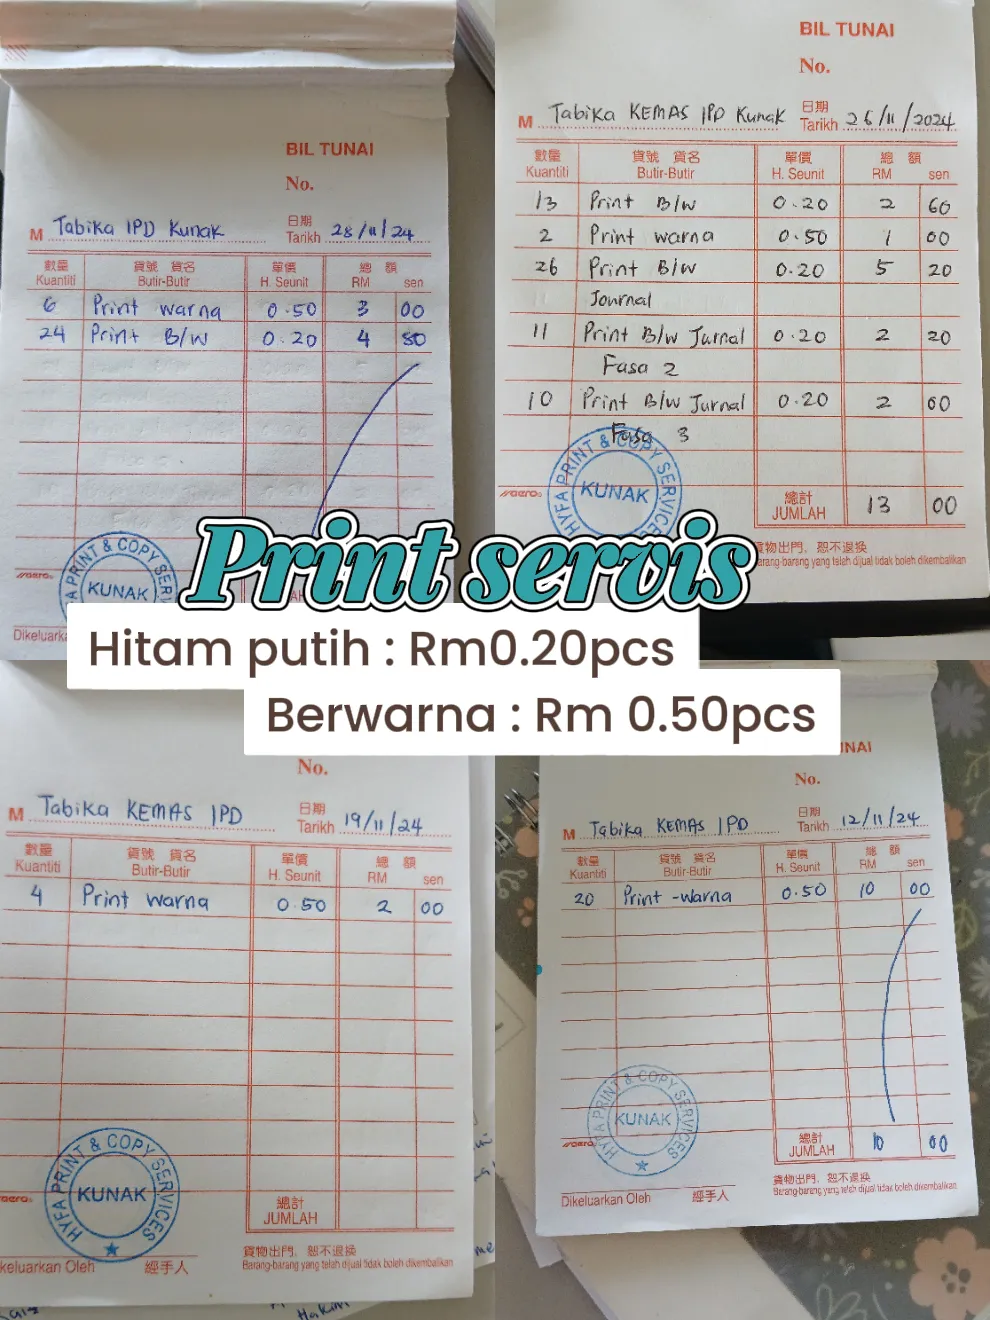 BIL TUNAI
No.
M Tabika IPD Kunak 日期 Tarikh 28/11/24
數量 貨號 貨名 單價 總 額
Kuantiti Butir-Butir H. Seunit RM sen
6 Print warna 0.50 3 00
24 Print B/W 0.20 4 80
HYFA PRINT & COPY SERVICES
KUNAK
BIL TUNAI
No.
M Tabika KEMAS IPD Kunak 日期 Tarikh 26/11/2024
數量 貨號 貨名 單價 總 額
Kuantiti Butir-Butir H. Seunit RM sen
13 Print B/W 0.20 2 60
2 Print warna 0.50 1 00
26 Print B/W 0.20 5 20
Journal
11 Print B/W Jurnal 0.20 2 20
Fasa 2
10 Print B/W Jurnal 0.20 2 00
Fasa 3
HYFA PRINT & COPY SERVICES
KUNAK
總計
JUMLAH 13 00
貨物出門，恕不退換
barang yang telah dijual tidak boleh dikembalikan
Print servis
Hitam putih : Rm0.20pcs
Berwarna : Rm 0.50pcs
No.
M Tabika KEMAS IPD 日期 Tarikh 19/11/24
數量 貨號 貨名 單價 總 額
Kuantiti Butir-Butir H. Seunit RM sen
4 Print warna 0.50 2 00
HYFA PRINT & COPY SERVICES
KUNAK
總計
JUMLAH
keluarkan Oleh 經手人
貨物出門，恕不退換
Barang-barang yang telah dijual tidak boleh dikembalikan
Hakim
No.
M Tabika KEMAS IPD 日期 Tarikh 12/11/24
數量 貨號 貨名 單價 總 額
Kuantiti Butir-Butir H. Seunit RM sen
20 Print -warna 0.50 10 00
HYFA PRINT & COPY SERVICES
KUNAK
總計
JUMLAH 10 00
Dikeluarkan Oleh 經手人
貨物出門，恕不退換
Barang-barang yang telah dijual tidak boleh dikembalikan